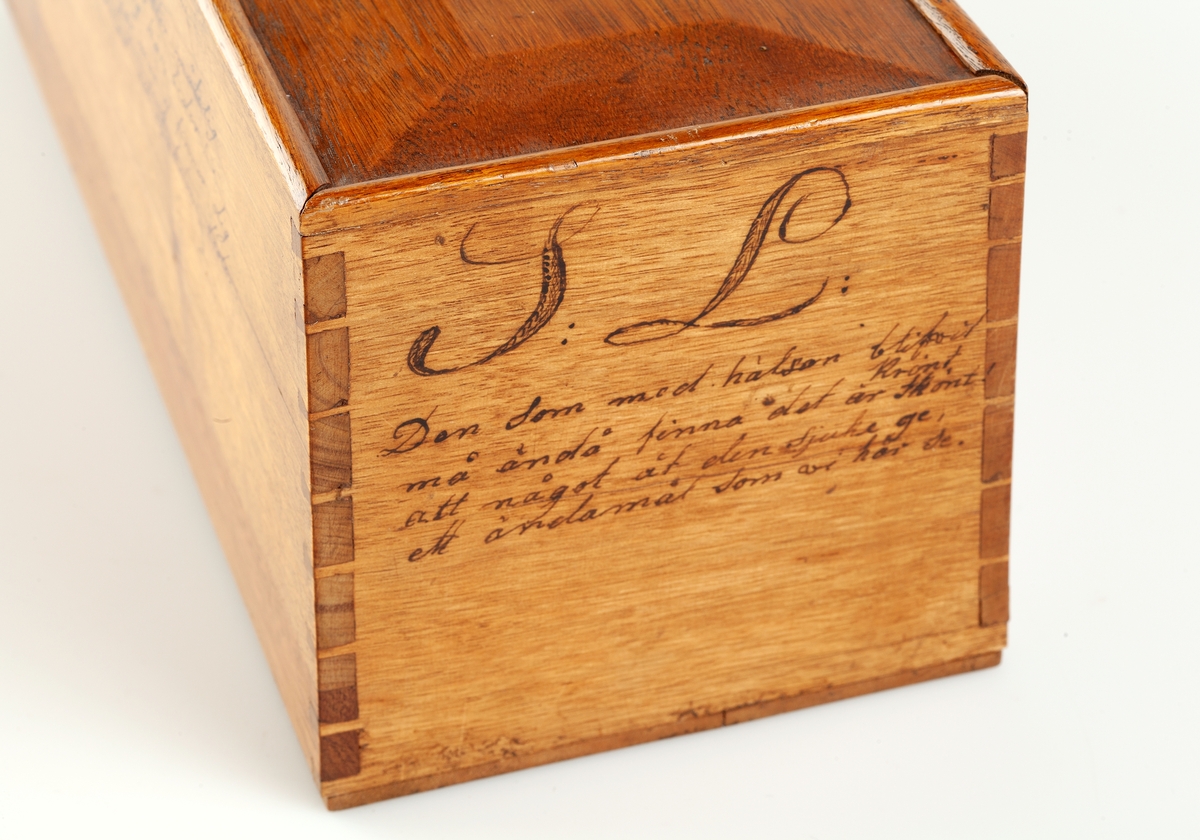 S. L:
Den som med hälsan blifvit
krönt
må ändå finna det är skönt!
att något åt den sjuke ge,
ett ändamål som vi här se.